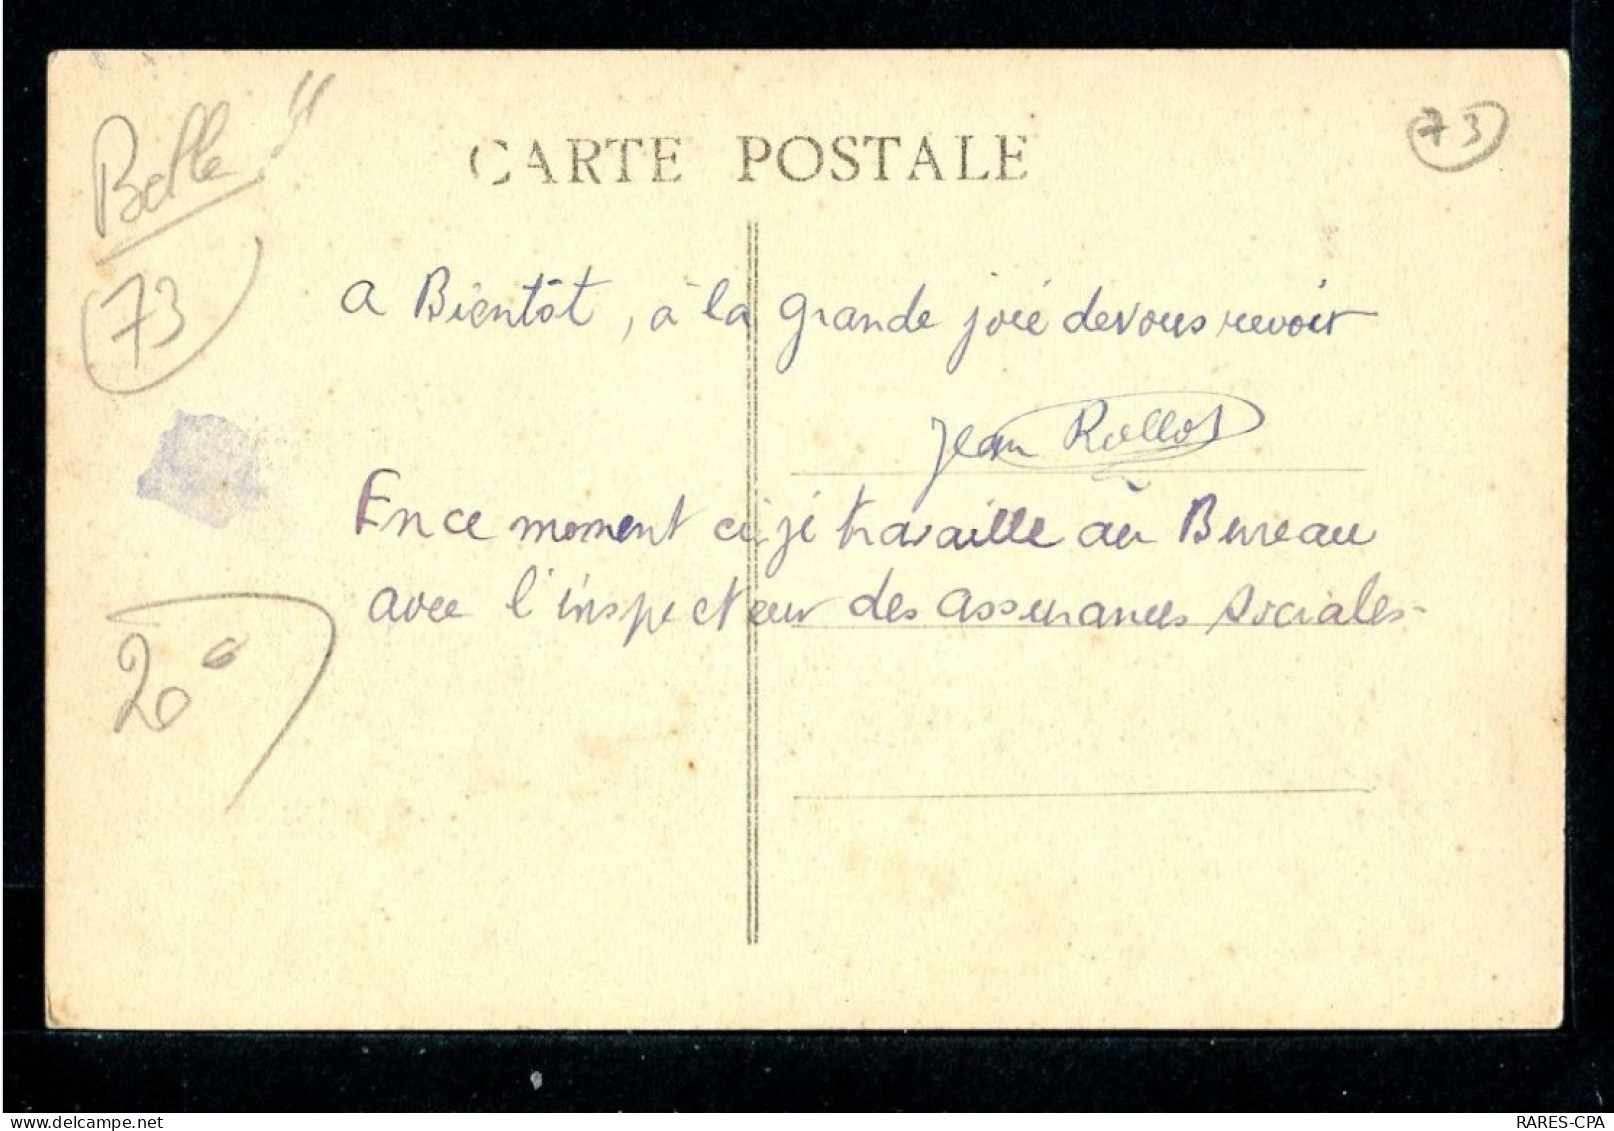 Belle !!
73
CARTE POSTALE
73
a Bientôt, à la grande joie de vous revoir
Jean
En ce moment ci je travaille au Bureau
avec l'inspecteur des assurances sociales
20
RARES-CPA